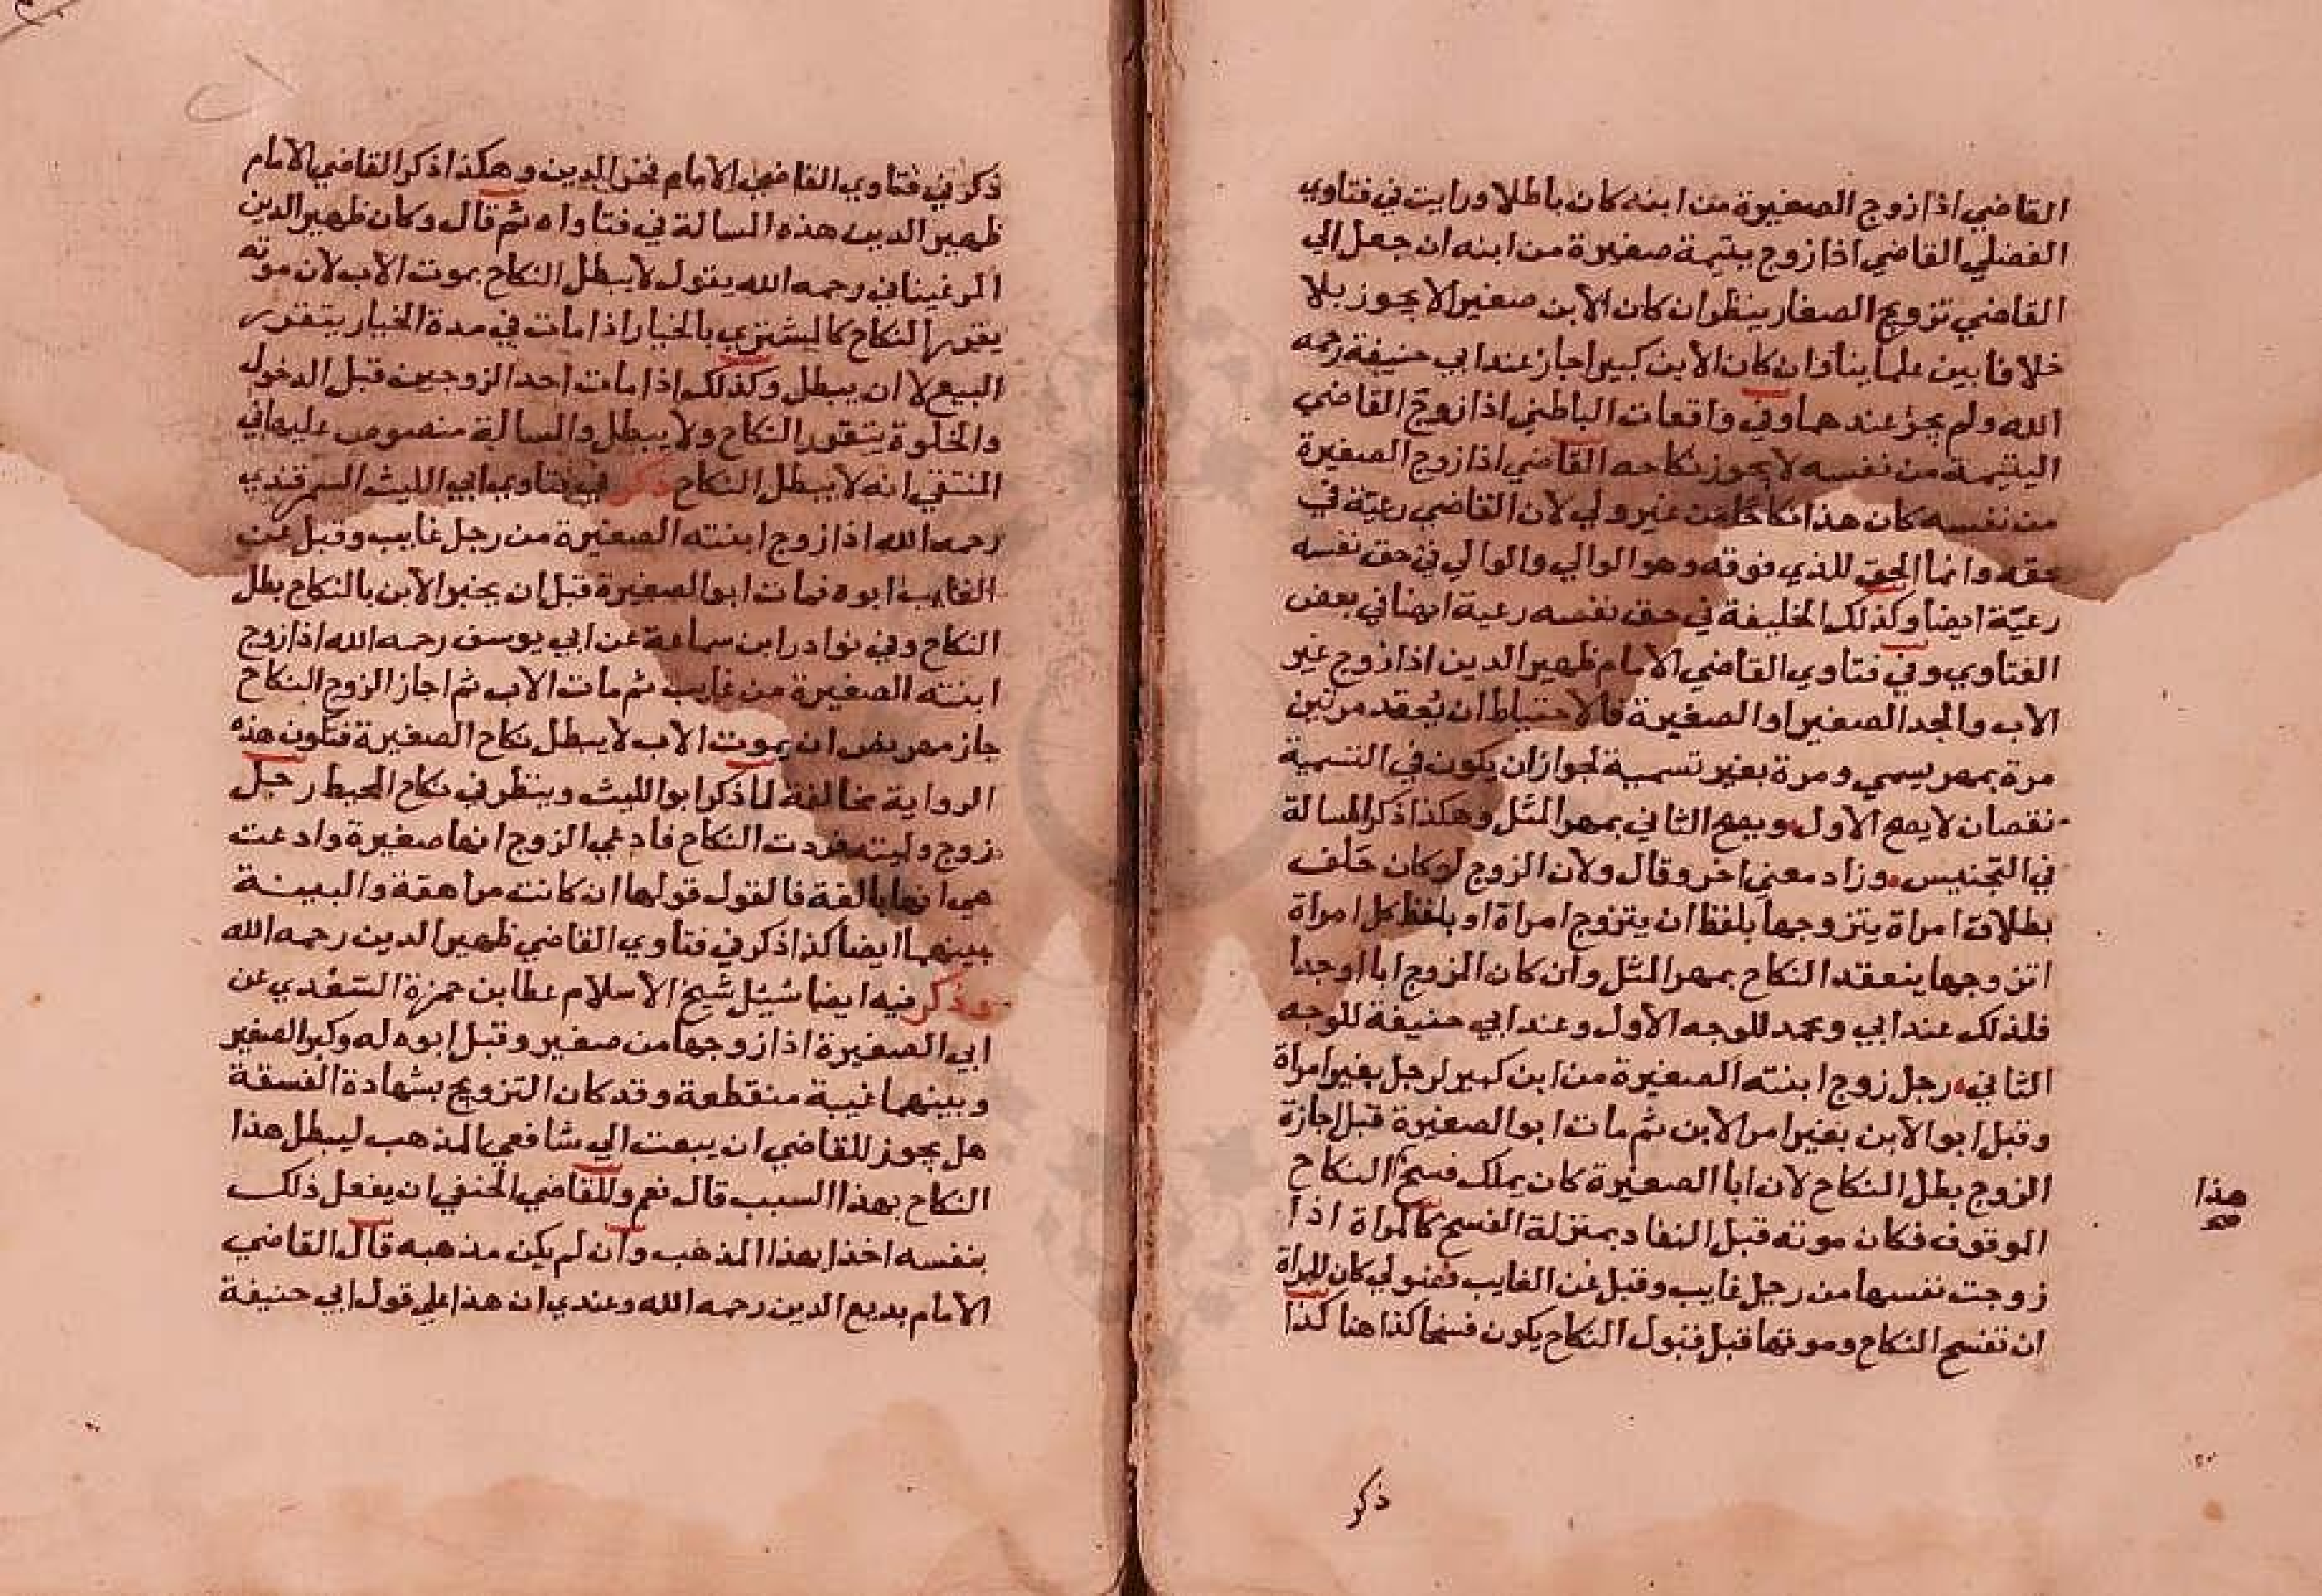 القاضي اذا زوج الصغيرة من ابنه كان باطلا ورايت في فتاوي
الفضلي القاضي اذا زوج يتيمة صغيرة من ابنه ان جعل الي
القاضي تزويج الصغار ينظر ان كان الابن صغيرا لا يجوز بلا
خلاف بين علماينا وان كان الابن كبيرا جاز عند ابي حنيفة رحمه
الله ولم يجز عندهما وفي واقعات الباطني اذا زوج القاضي
اليتيمة من نفسه لا يجوز نكاحه القاضي اذا زوج الصغيرة
من نفسه كان هذا نكاحا من غير ولي لان القاضي رعيّة في
حقه وانما الحق للذي فوقه وهو الوالي والوالي في حق نفسه
رعيّة ايضا وكذلك الخليفة في حق نفسه رعية ايضا في بعض
الفتاوي وفي فتاوي القاضي الامام ظهير الدين اذا زوج غير
الاب والجد الصغير او الصغيرة فالاحتياط ان يُعقد مرتين
مرة بمهر يسمي ومرة بغير تسمية لجواز ان يكون في التسمية
نقصان لا يصح الاول ويصح الثاني بمهر المثل وهكذا ذكر المسالة
في التجنيس وزاد معني اخر وقال ولان الزوج لو كان حَلف
بطلاق امراة يتزوجها بلفظ ان يتزوج امراة او بلفظ كل امراة
اتزوجها ينعقد النكاح بمهر المثل وان كان المزوج ابا او جدا
فلذلك عند ابي ومحمد للوجه الاول وعند ابي حنيفة للوجه
الثاني رجل زوج ابنته الصغيرة من ابن كبير لرجل بغير امراة
وقبل ابو الابن بغير امر الابن ثم مات ابو الصغيرة قبل اجازة
الزوج بطل النكاح لان ابا الصغيرة كان يملك فسخ النكاح
الموقوف فكان موته قبل النفاد بمنزلة الفسخ كالمراة اذا
زوجت نفسها من رجل غايب وقبل عن الغايب فضولي كان للمراة
ان تفسخ النكاح وموتها قبل قبول النكاح يكون فسخا كذا هنا كذا
هذا
صح
ذكر
ذكر في فتاوي القاضي الامام فخر الدين وهكذا ذكر القاضي الامام
ظهير الدين هذه المسالة في فتاواه ثم قال وكان ظهير الدين
المرغيناني رحمه الله يقول لا يبطل النكاح بموت الاب لان موته
يقرر النكاح كالمشتري بالخيار اذا مات في مدة الخيار يتقرر
البيع لا ان يبطل وكذلك اذا مات احد الزوجين قبل الدخول
والخلوة يتقرر النكاح ولا يبطل والمسالة منصوص عليها في
المنتقي انه لا يبطل النكاح ذكر في فتاوي ابي الليث السمرقندي
رحمه الله اذا زوج ابنته الصغيرة من رجل غايب وقبل عن
الغايب ابوه فمات ابو الصغيرة قبل ان يخبر الابن بالنكاح بطل
النكاح وفي نوادر ابن سماعة عن ابي يوسف رحمه الله اذا زوج
ابنته الصغيرة من غايب ثم مات الاب ثم اجاز الزوج النكاح
جاز ان بموت الاب لا يبطل نكاح الصغيرة فتكون هذه
الرواية مخالفة لما ذكر ابو الليث وينظر في نكاح المحيط رجل
زوج وليته فردت النكاح فادعي الزوج انها صغيرة وادعت
هي انها بالغة فالقول قولها ان كانت مراهقة والبينة
بينهما ايضا كذا ذكر في فتاوي القاضي ظهير الدين رحمه الله
وذكر فيه ايضا سُئِل شيخ الاسلام عطا بن حمزة السُغدي عن
ابي الصغيرة اذا زوجها من صغير وقبل ابوه له وكبر الصغير
وبينهما غيبة منقطعة وقد كان التزويج بشهادة الفسقة
هل يجوز للقاضي ان يبعث الي شافعي المذهب ليبطل هذا
النكاح بهذا السبب قال نعم وللقاضي الحنفي ان يفعل ذلك
بنفسه اخذا بهذا المذهب وان لم يكن مذهبه قال القاضي
الامام بديع الدين رحمه الله وعندي ان هذا علي قول ابي حنيفة